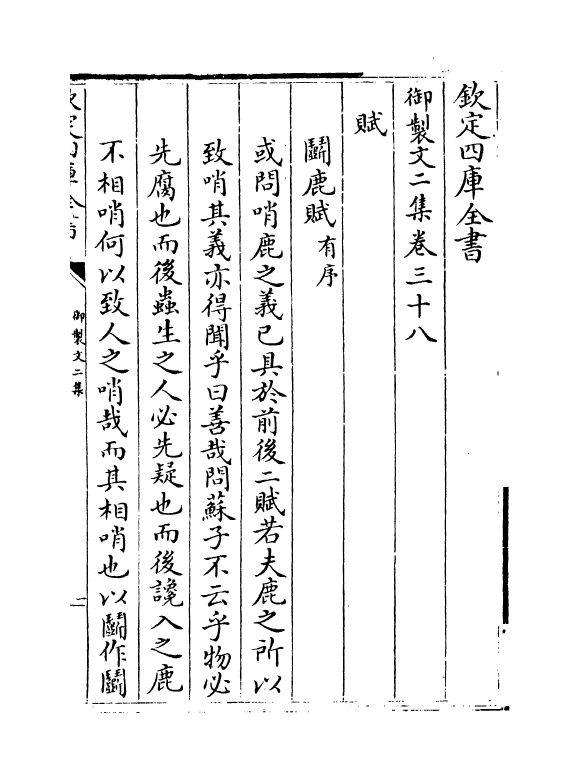 欽定四庫全書
御製文二集卷三十八
賦
鬭鹿賦有序
或問哨鹿之義已具於前後二賦若夫鹿之所以
致哨其義亦得聞乎曰善哉問蘇子不云乎物必
先腐也而後蟲生之人必先疑也而後讒入之鹿
不相哨何以致人之哨哉而其相哨也以鬭作鬭
欽定四庫全書
御製文二集